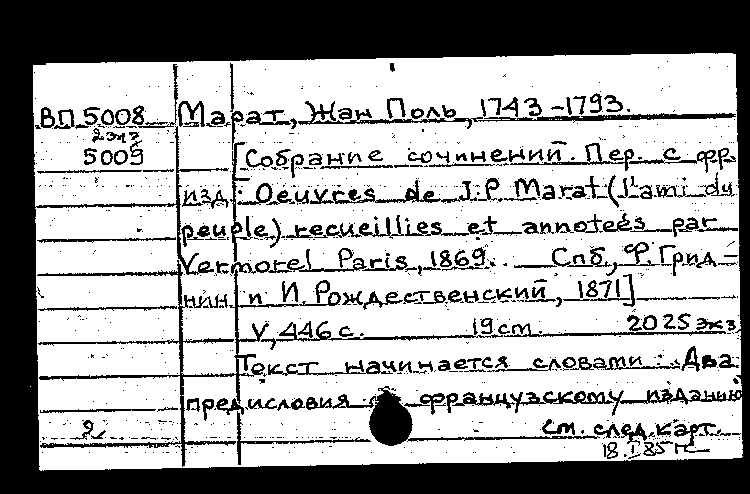 ВП 5008 Марат, Жан Поль, 1743-1793.
2 экз
5009 [Собрание сочинений. Пер. с фр.
изд.: Oeuvres de J.P Marat (l'ami du
peuple) recueillies et annoteés par
Vermorel Paris, 1869. Спб., Ф. Грид-
нин и И. Рождественский, 1871]
V, 446 с. 19 cm. 2025 экз
Текст начинается словами: „Два
предисловия французскому изданию
2 См. след. карт.
18.I 85